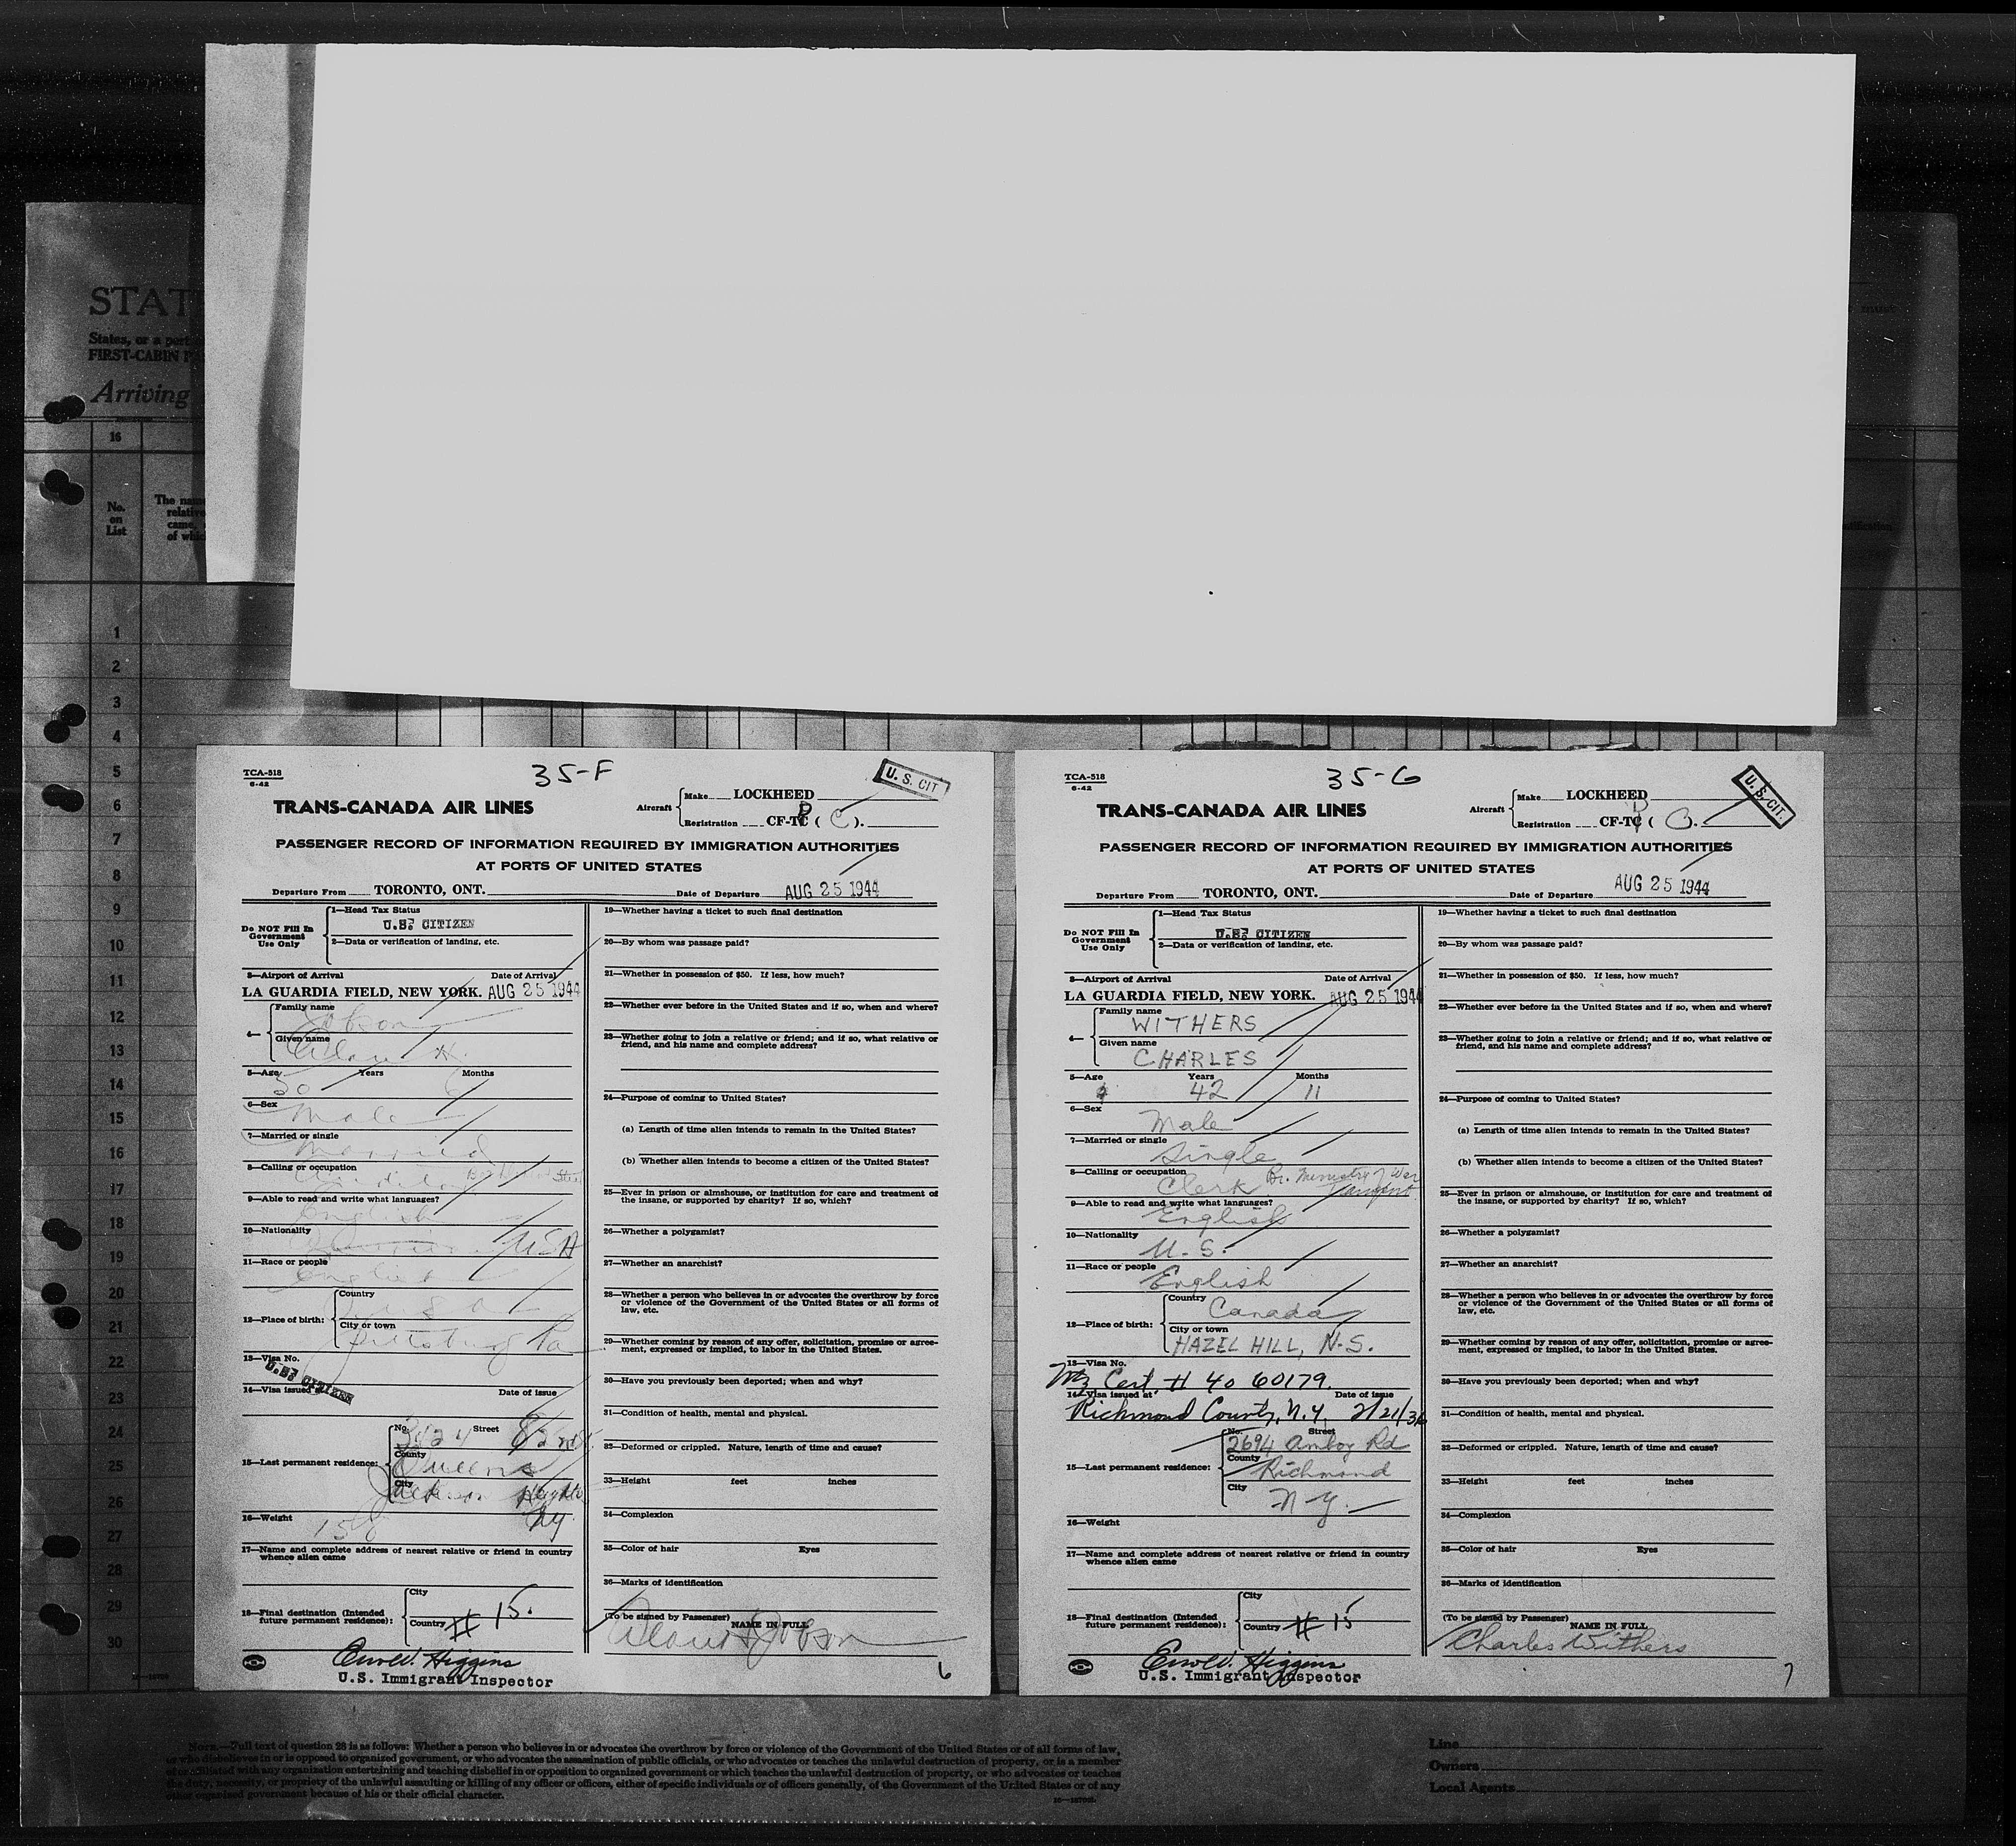 STAT
States, or a port
FIRST-CABIN P
Arriving
must
16
No.
on
List
The nam
relativ
came,
of whic
1
2
3
4
5
6
7
8
9
10
11
12
13
14
15
16
17
18
19
20
21
22
23
24
25
26
27
28
29
30
TCA-518
6-42
35-F
U. S. CIT
TRANS-CANADA AIR LINES
Aircraft
Make LOCKHEED
Registration CF-TC ( C ).
PASSENGER RECORD OF INFORMATION REQUIRED BY IMMIGRATION AUTHORITIES
AT PORTS OF UNITED STATES
Departure From TORONTO, ONT. Date of Departure AUG 25 1944
Do NOT Fill In
Government
Use Only
1—Head Tax Status
U.S. CITIZEN
2—Data or verification of landing, etc.
3—Airport of Arrival Date of Arrival
LA GUARDIA FIELD, NEW YORK. AUG 25 1944
4—
Family name
Jobson
Given name
Alan H.
5—Age 50 Years 6 Months
6—Sex
Male
7—Married or single
Married
8—Calling or occupation
9—Able to read and write what languages?
English
10—Nationality
USA
11—Race or people
English
12—Place of birth:
Country
U S A
City or town
Pittsburg Pa
13—Visa No.
U.S. CITIZEN
14—Visa issued at Date of issue
15—Last permanent residence:
No. Street
3424 82nd St.
County
Queens
City
Jackson Heights
NY.
16—Weight
158
17—Name and complete address of nearest relative or friend in country
whence alien came
18—Final destination (Intended
future permanent residence):
City
Country # 15.
Higgins
U.S. Immigrant Inspector
19—Whether having a ticket to such final destination
20—By whom was passage paid?
21—Whether in possession of $50. If less, how much?
22—Whether ever before in the United States and if so, when and where?
23—Whether going to join a relative or friend; and if so, what relative or
friend, and his name and complete address?
24—Purpose of coming to United States?
(a) Length of time alien intends to remain in the United States?
(b) Whether alien intends to become a citizen of the United States?
25—Ever in prison or almshouse, or institution for care and treatment of
the insane, or supported by charity? If so, which?
26—Whether a polygamist?
27—Whether an anarchist?
28—Whether a person who believes in or advocates the overthrow by force
or violence of the Government of the United States or all forms of
law, etc.
29—Whether coming by reason of any offer, solicitation, promise or agree-
ment, expressed or implied, to labor in the United States.
30—Have you previously been deported; when and why?
31—Condition of health, mental and physical.
32—Deformed or crippled. Nature, length of time and cause?
33—Height feet inches
34—Complexion
35—Color of hair Eyes
36—Marks of identification
(To be signed by Passenger) NAME IN FULL
Alan H Jobson
6
TCA-518
6-42
35-G
U. S. CIT.
TRANS-CANADA AIR LINES
Aircraft
Make LOCKHEED
Registration CF-TC ( ).
PASSENGER RECORD OF INFORMATION REQUIRED BY IMMIGRATION AUTHORITIES
AT PORTS OF UNITED STATES
Departure From TORONTO, ONT. Date of Departure AUG 25 1944
Do NOT Fill In
Government
Use Only
1—Head Tax Status
U.S. CITIZEN
2—Data or verification of landing, etc.
3—Airport of Arrival Date of Arrival
LA GUARDIA FIELD, NEW YORK. AUG 25 1944
4—
Family name
WITHERS
Given name
CHARLES
5—Age Years Months
42 11
6—Sex
Male
7—Married or single
Single
8—Calling or occupation
Clerk Br. Ministry of War
Transport
9—Able to read and write what languages?
English
10—Nationality
U. S.
11—Race or people
English
12—Place of birth:
Country
Canada
City or town
HAZEL HILL, N.S.
13—Visa No.
Cert. # 40 60179.
14—Visa issued at Date of issue
Richmond County, N.Y. 2/21/36
15—Last permanent residence:
No. Street
2694 Amboy Rd
County
Richmond
City
N-Y.
16—Weight
17—Name and complete address of nearest relative or friend in country
whence alien came
18—Final destination (Intended
future permanent residence):
City
Country # 15
Higgins
U.S. Immigrant Inspector
19—Whether having a ticket to such final destination
20—By whom was passage paid?
21—Whether in possession of $50. If less, how much?
22—Whether ever before in the United States and if so, when and where?
23—Whether going to join a relative or friend; and if so, what relative or
friend, and his name and complete address?
24—Purpose of coming to United States?
(a) Length of time alien intends to remain in the United States?
(b) Whether alien intends to become a citizen of the United States?
25—Ever in prison or almshouse, or institution for care and treatment of
the insane, or supported by charity? If so, which?
26—Whether a polygamist?
27—Whether an anarchist?
28—Whether a person who believes in or advocates the overthrow by force
or violence of the Government of the United States or all forms of
law, etc.
29—Whether coming by reason of any offer, solicitation, promise or agree-
ment, expressed or implied, to labor in the United States.
30—Have you previously been deported; when and why?
31—Condition of health, mental and physical.
32—Deformed or crippled. Nature, length of time and cause?
33—Height feet inches
34—Complexion
35—Color of hair Eyes
36—Marks of identification
(To be signed by Passenger) NAME IN FULL
Charles Withers
7
NOTE.—Full text of question 28 is as follows: Whether a person who believes in or advocates the overthrow by force or violence of the Government of the United States or of all forms of law,
or who disbelieves in or is opposed to organized government, or who advocates the assassination of public officials, or who advocates or teaches the unlawful destruction of property, or is a member
of or affiliated with any organization entertaining and teaching disbelief in or opposition to organized government or which teaches the unlawful destruction of property, or who advocates or teaches
the duty, necessity, or propriety of the unlawful assaulting or killing of any officer or officers, either of specific individuals or of officers generally, of the Government of the United States or of any
other organized government because of his or their official character.
Line
Owners
Local Agents